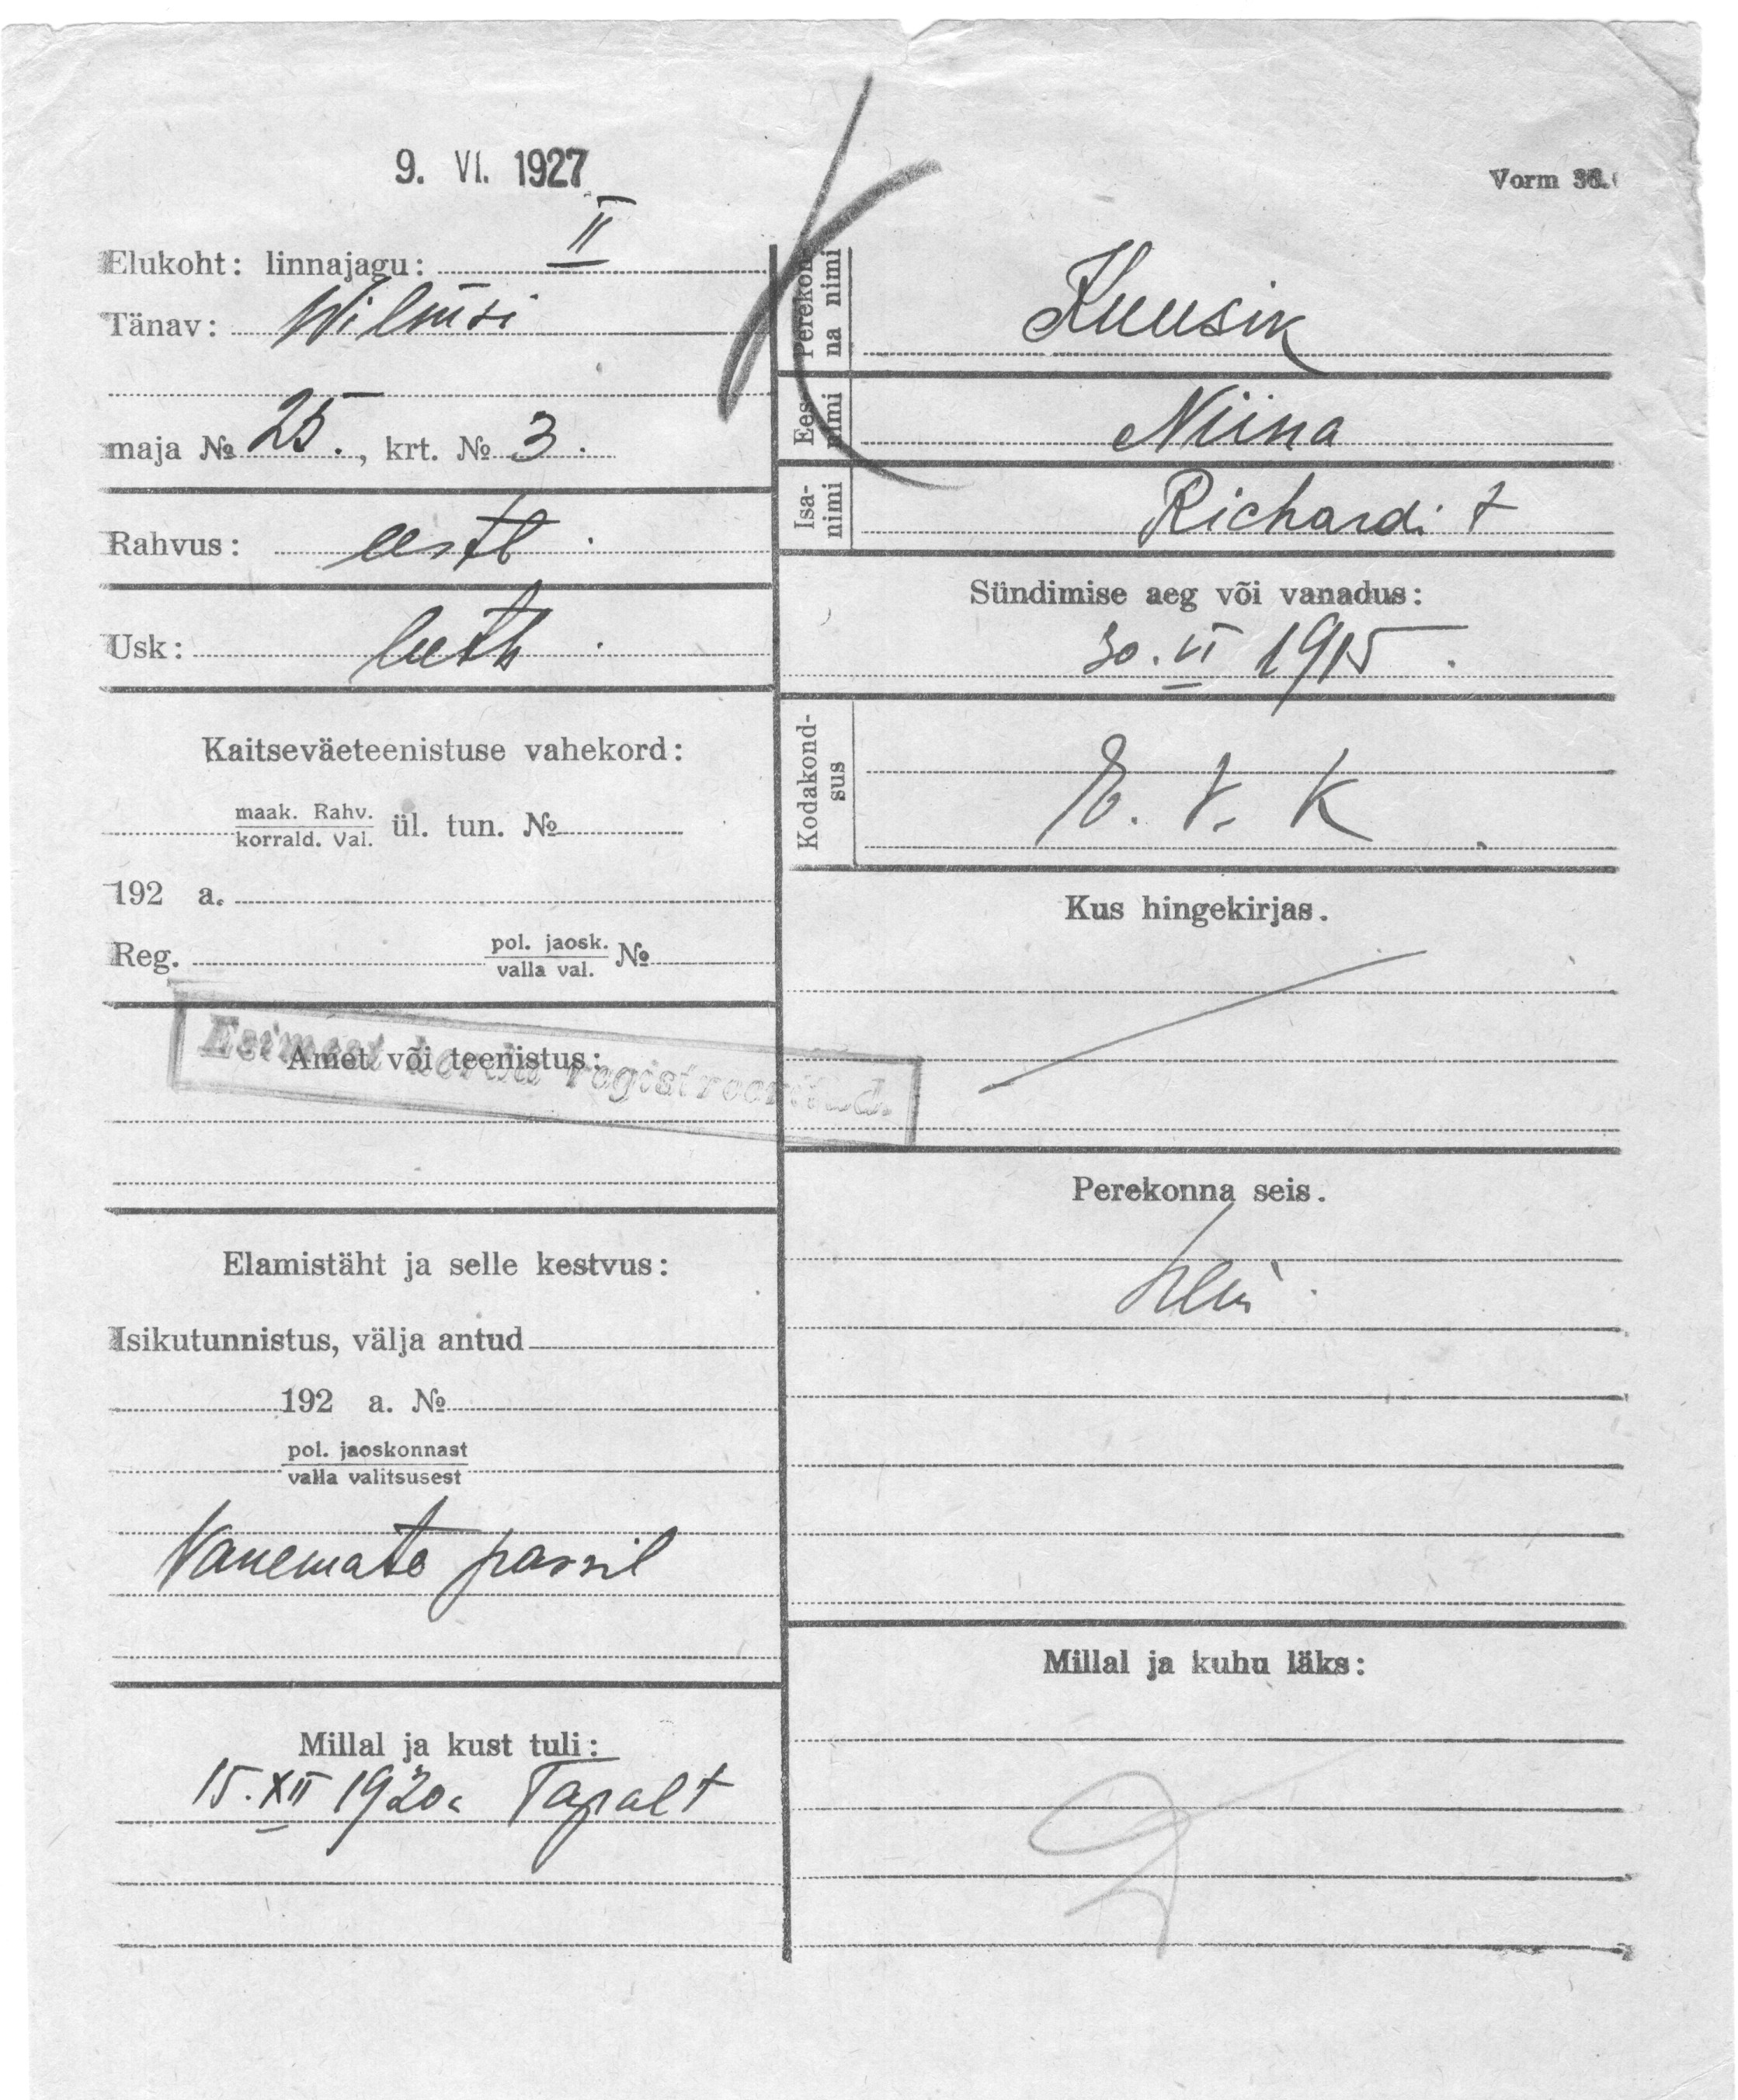 9. VI. 1927
Vorm 36.
Elukoht: linnajagu: II
Tänav: Wilmsi
maja № 25., krt. № 3.
Rahvus: eestl.
Usk: luth.
Kaitseväeteenistuse vahekord:
maak. Rahv.
korrald. Val. ül. tun. №
192 a.
Reg. pol. jaosk.
valla val. №
Esimest korda registreeritud.
Amet või teenistus:
Elamistäht ja selle kestvus:
Isikutunnistus, välja antud
192 a. №
pol. jaoskonnast
valla valitsusest
Vanemate passil
Millal ja kust tuli:
15. XII 1920a Tapalt
Perekon-
na nimi
Kuusik
Ees-
nimi
Niina
Isa-
nimi
Richardi t
Sündimise aeg või vanadus:
30. VI 1915.
Kodakond-
sus
E. V. K.
Kus hingekirjas.
Perekonna seis.
Millal ja kuhu läks: